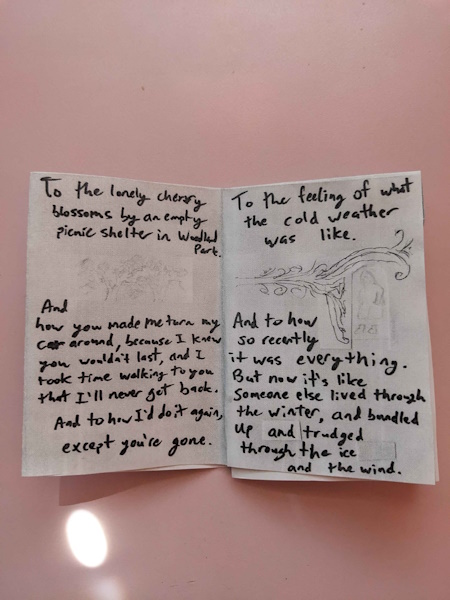 To the lonely cherry
blossoms by an empty
picnic shelter in Woodland
Park.
And
how you made me turn my
car around, because I knew
you wouldn't last, and I
took time walking to you
that I'll never get back.
And to how I'd do it again,
except you're gone.
To the feeling of what
the cold weather
was like.
And to how
so recently
it was everything.
But now it's like
someone else lived through
the winter, and bundled
up and trudged
through the ice
and the wind.